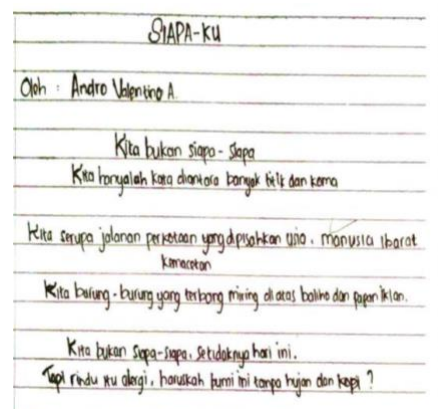 SIAPA-KU
Oleh : Andro Valentino A.
Kita bukan siapa-siapa
Kita hanyalah kata diantara banyak titik dan koma
Kita serupa jalanan perkotaan yang dipisahkan usia, manusia ibarat
kemacetan
Kita burung-burung yang terbang miring di atas baliho dan papan iklan.
Kita bukan siapa-siapa, setidaknya hari ini.
Tapi rindu itu alergi, haruskah bumi ini tanpa hujan dan kopi ?